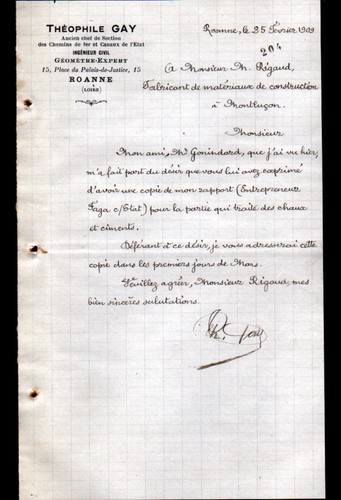 THÉOPHILE GAY
Ancien chef de Section
des Chemins de fer et Canaux de l'Etat
INGÉNIEUR CIVIL
GÉOMÈTRE-EXPERT
15, Place du Palais-de-Justice, 15
ROANNE
(LOIRE)
Roanne, le 25 Février 1909
204
A Monsieur M. Rigaud,
Fabricant de matériaux de construction
à Montluçon.
Monsieur
Mon ami, Mr Gonindard, que j'ai vu hier,
m'a fait part du désir que vous lui avez exprimé
d'avoir une copie de mon rapport (Entrepreneur
Faga c/Etat) pour la partie qui traite des chaux
et ciments.
Déférant à ce désir, je vous adresserai cette
copie dans les premiers jours de Mars.
Veuillez agréer, Monsieur Rigaud, mes
bien sincères salutations.
Th. Gay